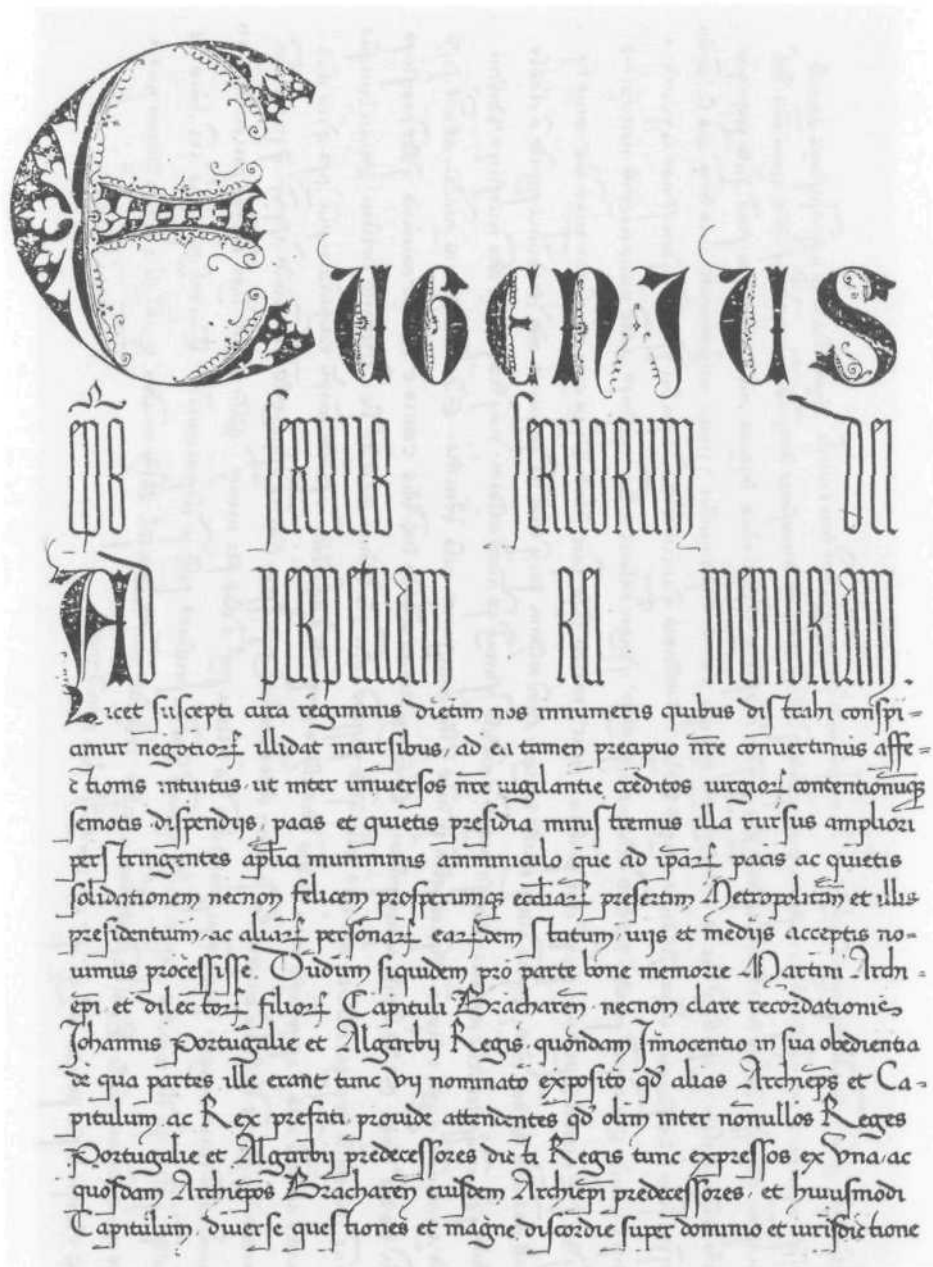 EUGENIUS
EPS SERUUS SERUORUM DEI
AD PERPETUAM REI MEMORIAM.
Licet suscepti cura regiminis dietim nos innumeris quibus distrahi conspi=
amur negotioꝝ illidat incursibus, ad ea tamen precipuo nr̄e conuertimus affe=
ctionis intuitus, ut inter uniuersos nr̄e uigilantie creditos iurgioꝝ contentionūqꝫ
semotis dispendijs, pacis et quietis presidia ministremus illa rursus ampliori
perstringentes aplica muniminis amminiculo que ad ipaꝝ pacis ac quietis
solidationem necnon felicem prosperumqꝫ eccliaꝝ presertim Metropolitan̄ et illis
presidentium, ac aliaꝝ personaꝝ earꝝdem statum, uijs et medijs acceptis no=
uimus processisse. Dudum siquidem pro parte bone memorie Martini Archi=
epi et dilectorꝝ filioꝝ Capituli Bracharen̄ necnon clare recordationis
Johannis Portugalie et Algarbij Regis, quondam Innocentio in sua obedientia
de qua partes ille erant tunc vij nominato exposito qd̄ alias Archieps et Ca=
pitulum, ac Rex prefati, prouide attendentes qd̄ olim inter nonnullos Reges
Portugalie et Algarbij predecessores dicti Regis tunc expressos ex vna, ac
quosdam Archiepos Bracharen̄ eiusdem Archiepi predecessores, et huiusmodi
Capitulum, diuerse questiones et magne discordie super dominio et iurisdictione